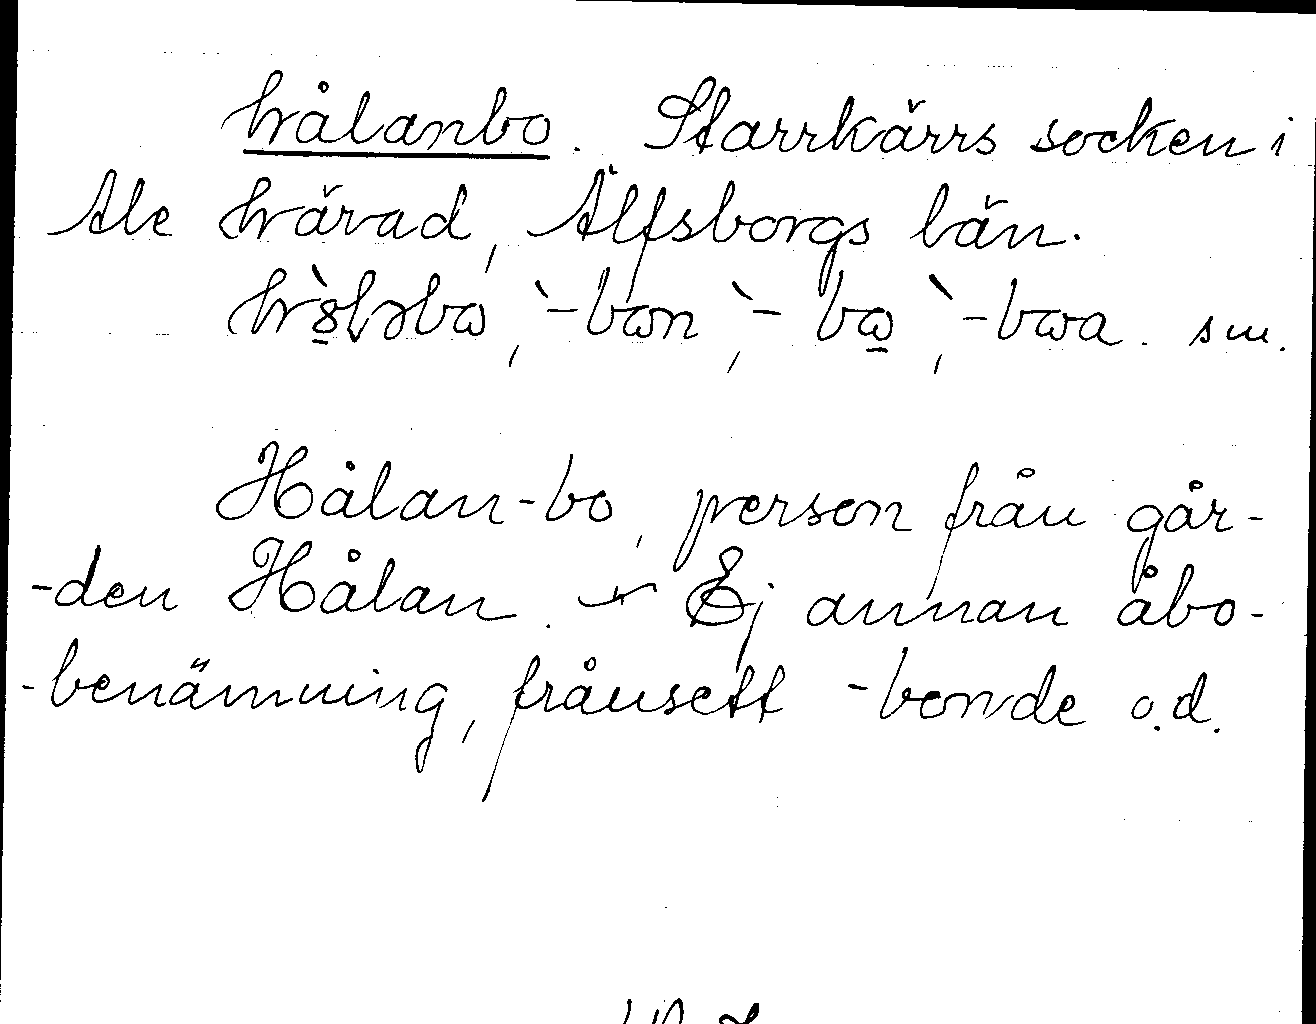 hålanbo. Starrkärrs socken i
Ale härad, Älfsborgs län.
hòlɔbɷ, `-bɷn, `-bɷ, `-bɷa. sm.
Hålan-bo, person från går-
-den Hålan. — Ej annan åbo-
-benämning, frånsett -bonde o.d.